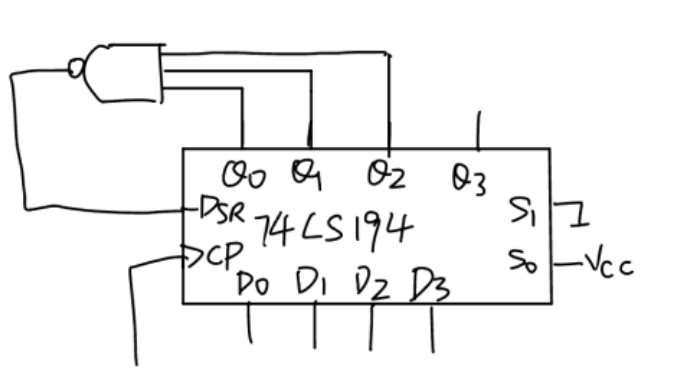 Q0 Q1 Q2 Q3
DSR 74LS194 S1
CP S0 VCC
D0 D1 D2 D3